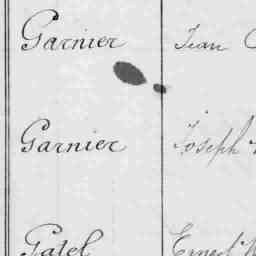 Garnier Jean
Garnier Joseph
Patel Ernest